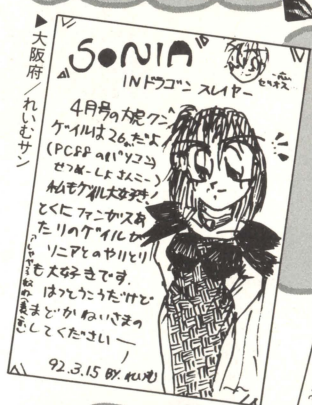 ▶大阪府／れいむサン
SONIA
INドラゴン スレイヤー
4月号の大虎クン
ゲイルは26だよ
(PC88のパソコン
せつめーしょさんこー)
私もゲイル大好き!
とくにファンがスあ
たりのゲイルが
ソニアとのやりとり
も大好きです.
はつとうこうだけど
まどかねいさま
してください——
92.3.15 BY.れいむ